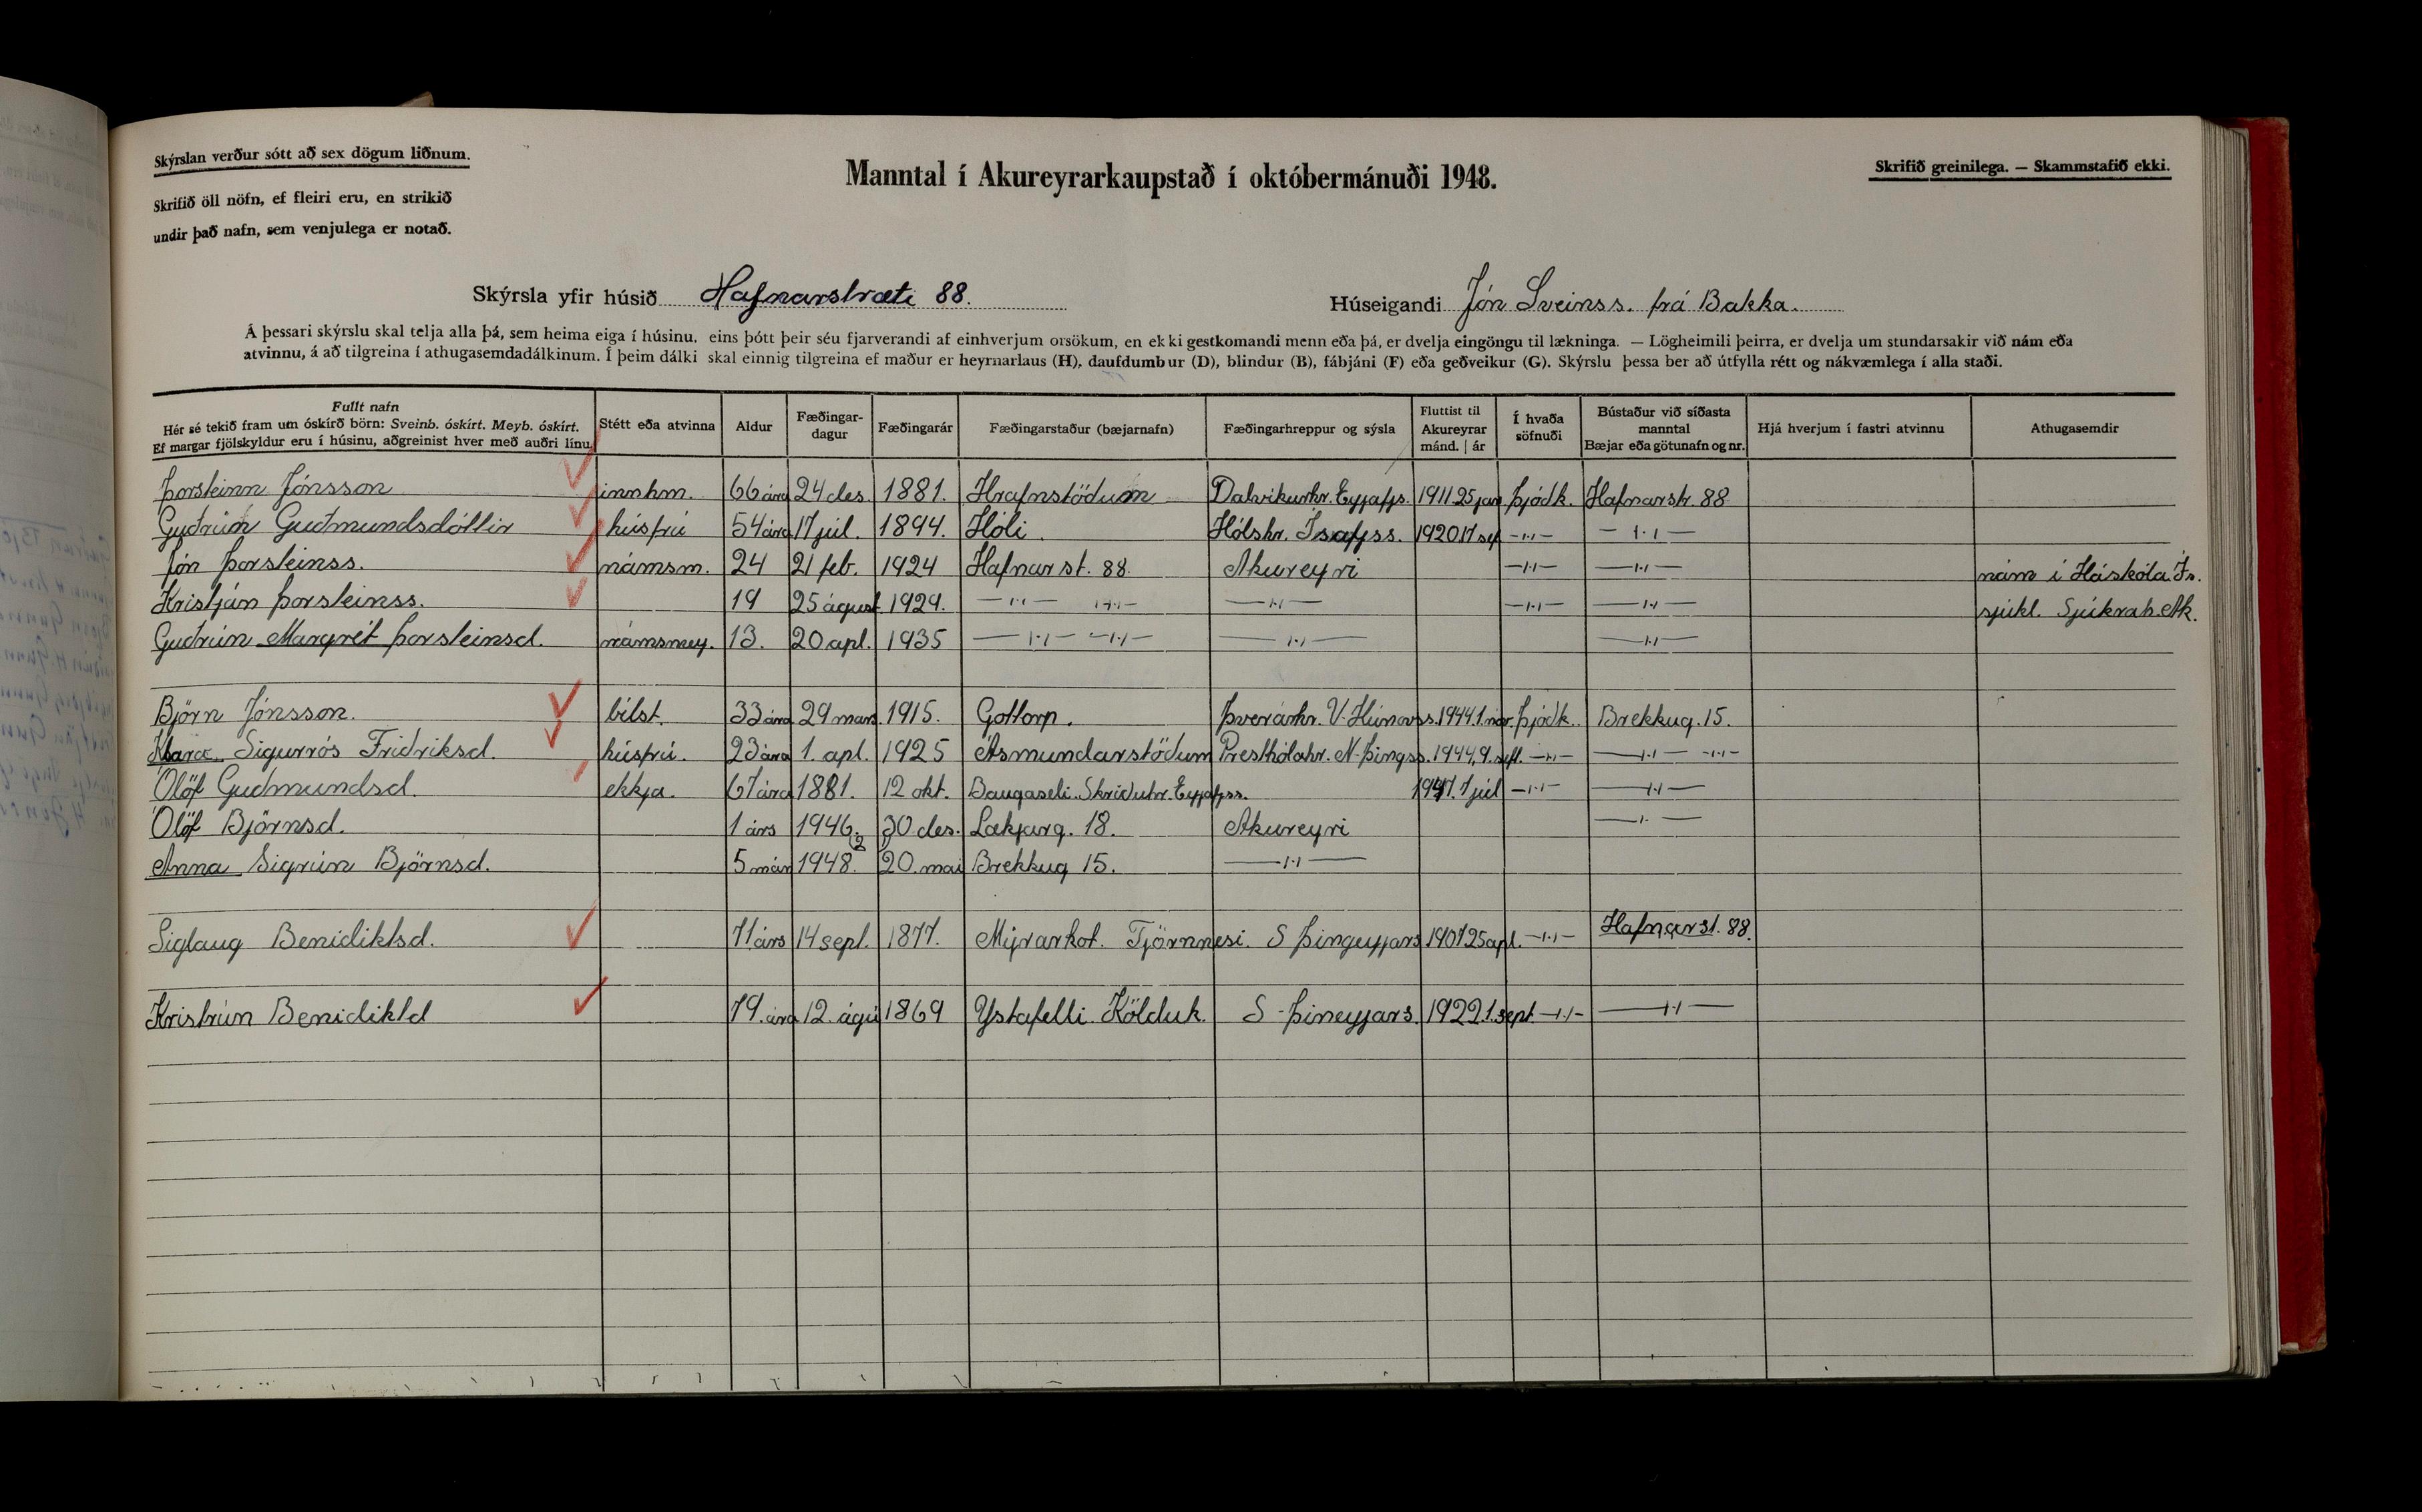 Skýrslan verður sótt að sex dögum liðnum.
Manntal í Akureyrarkaupstað í októbermánuði 1948.
Skrifið greinilega. — Skammstafið ekki.
Skrifið öll nöfn, ef fleiri eru, en strikið
undir það nafn, sem venjulega er notað.
Skýrsla yfir húsið Hafnarstræti 88.
Húseigandi Jón Sveinss. frá Bakka.
Á þessari skýrslu skal telja alla þá, sem heima eiga í húsinu, eins þótt þeir séu fjarverandi af einhverjum orsökum, en ekki gestkomandi menn eða þá, er dvelja eingöngu til lækninga. — Lögheimili þeirra, er dvelja um stundarsakir við nám eða
atvinnu, á að tilgreina í athugasemdadálkinum. Í þeim dálki skal einnig tilgreina ef maður er heyrnarlaus (H), daufdumbur (D), blindur (B), fábjáni (F) eða geðveikur (G). Skýrslu þessa ber að útfylla rétt og nákvæmlega í alla staði.
Fullt nafn
Hér sé tekið fram um óskírð börn: Sveinb. óskírt. Meyb. óskírt.
Ef margar fjölskyldur eru í húsinu, aðgreinist hver með auðri línu.
Stétt eða atvinna
Aldur
Fæðingar-
dagur
Fæðingarár
Fæðingarstaður (bæjarnafn)
Fæðingarhreppur og sýsla
Fluttist til
Akureyrar
mánd. | ár
Í hvaða
söfnuði
Bústaður við síðasta
manntal
Bæjar eða götunafn og nr.
Hjá hverjum í fastri atvinnu
Athugasemdir
Þorsteinn Jónsson innhm. 66 ára 24 des. 1881. Hrafnstöðum Dalvíkurhr. Eyjafjs. 1911 25 jan þjóðk. Hafnarstr. 88
Guðrún Guðmundsdóttir húsfrú 54 ára 17 júl. 1894. Hóli Hólshr. Ísafjss. 1920 17 sep —〃— —〃—
Jón Þorsteinss. námsm. 24 21 feb. 1924 Hafnarst. 88. Akureyri —〃— —〃— nám í Háskóla Ís.
Kristján Þorsteinss. 19 25 ágúst. 1929. —〃— —〃— —〃— —〃— —〃— sjúkl. Sjúkrah. Ak.
Guðrún Margrét Þorsteinsd. námsmey. 13. 20 apl. 1935 —〃— —〃— —〃— —〃—
Björn Jónsson. bílst. 33 ára 29 mars 1915. Gottorp. Þverárhr. V-Húnavs. 1944. 1. nóv. þjóðk. Brekkug. 15.
Sigurrós Friðriksd. húsfrú. 23 ára 1. apl. 1925 Ásmundarstöðum Presthólahr. N-Þingss. 1944, 9. sept. —〃— —〃— —〃—
Ólöf Guðmundsd. ekkja. 67 ára 1881. 12 okt. Baugaseli. Skriðuhr. Eyjafjss. 1947. 1 júl —〃— —〃—
Ólöf Björnsd. 1 árs 1946. 30 des. Lækjarg. 18. Akureyri —〃—
Anna Sigrún Björnsd. 5 mán 1948. 20. maí Brekkug 15. —〃—
Siglaug Benidiktsd. 71 árs 14 sept. 1877. Mýrarkot. Tjörnnesi. S Þingeyjars 1907 25 apl. —〃— Hafnarst. 88.
Kristrún Benidiktd 79. ára 12. ágú 1869 Ystafelli. Kölduk. S-Þineyjars. 1922 1. sept. —〃— —〃—